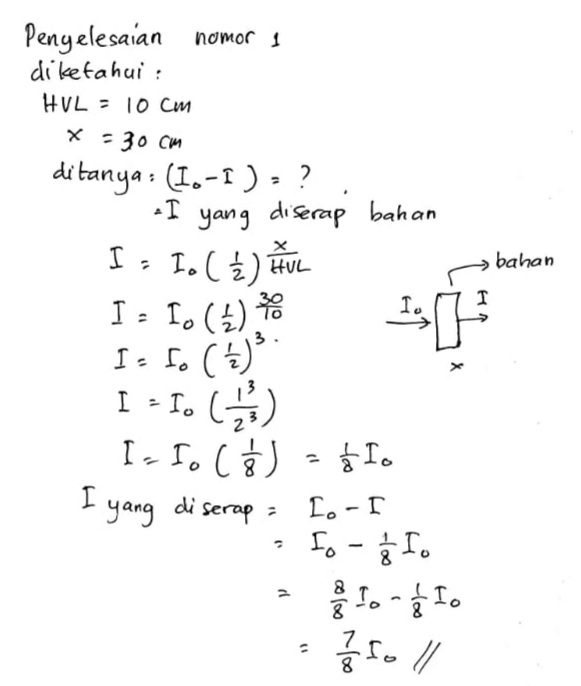 Penyelesaian nomor 1
diketahui :
HVL = 10 cm
x = 30 cm
ditanya : (I₀-I) = ?
= I yang diserap bahan
I = I₀ (1/2)^(x/HVL)
I = I₀ (1/2)^(30/10)
I = I₀ (1/2)³
I = I₀ (1³/2³)
I = I₀ (1/8) = 1/8 I₀
bahan
I₀ I
x
I yang diserap = I₀ - I
= I₀ - 1/8 I₀
= 8/8 I₀ - 1/8 I₀
= 7/8 I₀ //